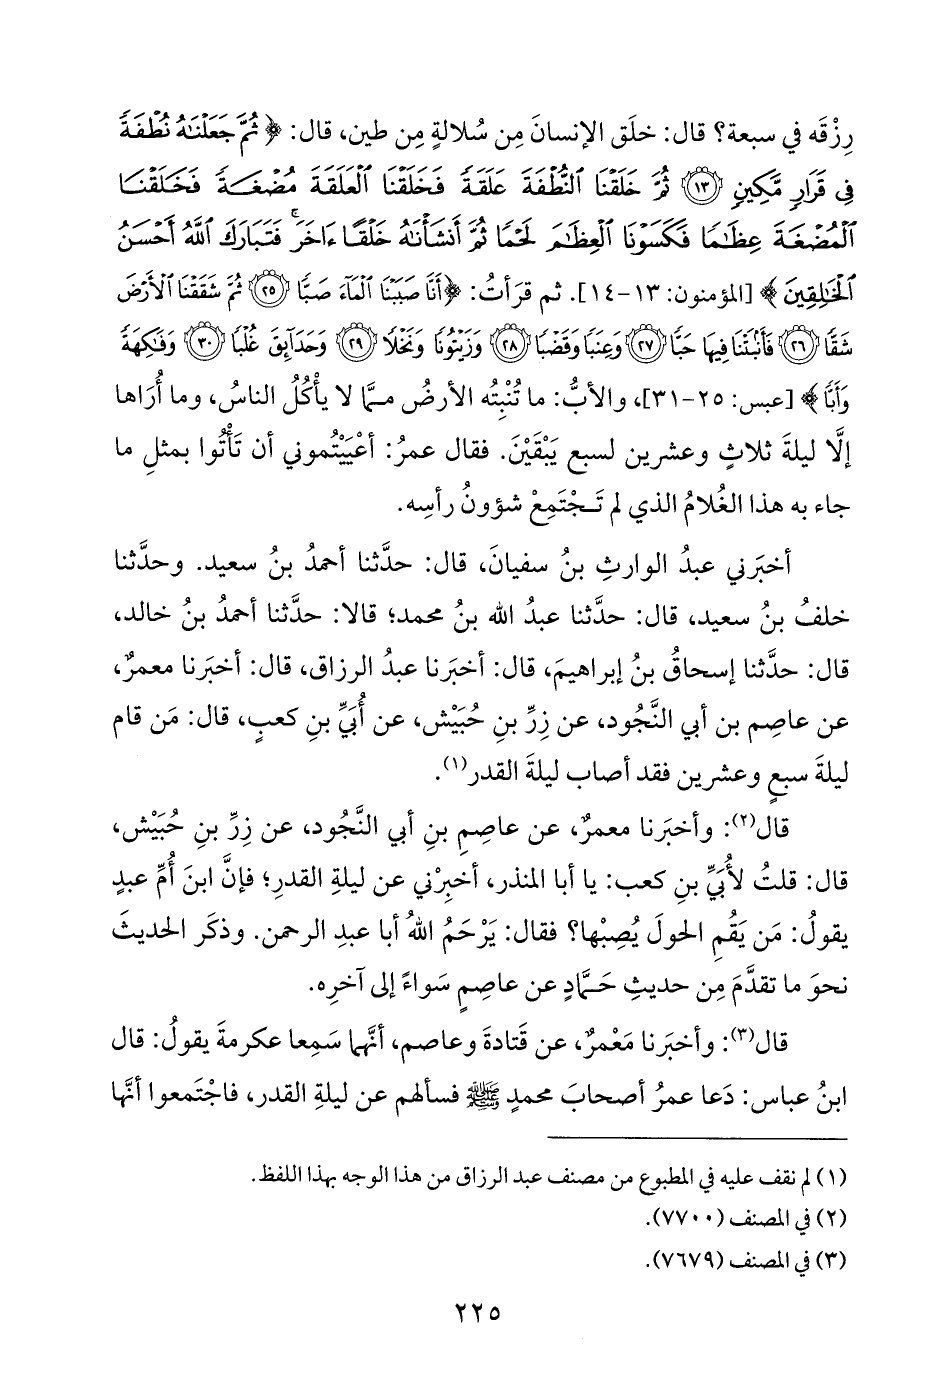 رِزْقَه في سبعة؟ قال: خلَق الإنسانَ مِن سُلالةٍ مِن طين، قال: ﴿ثُمَّ جَعَلْنَٰهُ نُطْفَةً
فِي قَرَارٍ مَّكِينٍ ﴿١٣﴾ ثُمَّ خَلَقْنَا ٱلنُّطْفَةَ عَلَقَةً فَخَلَقْنَا ٱلْعَلَقَةَ مُضْغَةً فَخَلَقْنَا
ٱلْمُضْغَةَ عِظَٰمًا فَكَسَوْنَا ٱلْعِظَٰمَ لَحْمًا ثُمَّ أَنشَأْنَٰهُ خَلْقًا ءَاخَرَ ۚ فَتَبَارَكَ ٱللَّهُ أَحْسَنُ
ٱلْخَٰلِقِينَ﴾ [المؤمنون: ١٣-١٤]. ثم قرَأتُ: ﴿أَنَّا صَبَبْنَا ٱلْمَآءَ صَبًّا ﴿٢٥﴾ ثُمَّ شَقَقْنَا ٱلْأَرْضَ
شَقًّا ﴿٢٦﴾ فَأَنۢبَتْنَا فِيهَا حَبًّا ﴿٢٧﴾ وَعِنَبًا وَقَضْبًا ﴿٢٨﴾ وَزَيْتُونًا وَنَخْلًا ﴿٢٩﴾ وَحَدَآئِقَ غُلْبًا ﴿٣٠﴾ وَفَٰكِهَةً
وَأَبًّا﴾ [عبس: ٢٥-٣١]، والأبُّ: ما تُنْبِتُه الأرضُ ممَّا لا يأْكُلُ الناسُ، وما أُرَاها
إلَّا ليلةَ ثلاثٍ وعشرين لسبعٍ يَبْقَيْنَ. فقال عمرُ: أعْيَيْتُموني أن تَأْتُوا بمثلِ ما
جاء به هذا الغُلامُ الذي لم تَجْتَمِعْ شؤونُ رأسِه.
أخبَرني عبدُ الوارثِ بنُ سفيانَ، قال: حدَّثنا أحمدُ بنُ سعيد. وحدَّثنا
خلفُ بنُ سعيد، قال: حدَّثنا عبدُ الله بنُ محمد؛ قالا: حدَّثنا أحمدُ بنُ خالد،
قال: حدَّثنا إسحاقُ بنُ إبراهيمَ، قال: أخبَرنا عبدُ الرزاق، قال: أخبَرنا معمرٌ،
عن عاصِم بن أبي النَّجُود، عن زِرِّ بنِ حُبَيْش، عن أُبَيِّ بنِ كعبٍ، قال: مَن قام
ليلةَ سبعٍ وعشرين فقد أصاب ليلةَ القدر(١).
قال(٢): وأخبَرنا معمرٌ، عن عاصِمِ بنِ أبي النَّجُود، عن زِرِّ بنِ حُبَيْش،
قال: قلتُ لأُبَيِّ بنِ كعب: يا أبا المنذر، أخبِرْني عن ليلةِ القدرِ؛ فإنَّ ابنَ أُمِّ عبدٍ
يقولُ: مَن يَقُمِ الحولَ يُصِبْها؟ فقال: يَرْحَمُ اللهُ أبا عبدِ الرحمن. وذكَر الحديثَ
نحوَ ما تقدَّمَ مِن حديثِ حَمَّادٍ عن عاصِمٍ سَواءً إلى آخرِه.
قال(٣): وأخبَرنا مَعْمرٌ، عن قَتادةَ وعاصم، أنَّهما سَمِعا عكرمةَ يقولُ: قال
ابنُ عباس: دَعا عمرُ أصحابَ محمدٍ ﷺ فسألهم عن ليلةِ القدر، فاجْتَمعوا أنَّها
(١) لم نقف عليه في المطبوع من مصنف عبد الرزاق من هذا الوجه بهذا اللفظ.
(٢) في المصنف (٧٧٠٠).
(٣) في المصنف (٧٦٧٩).
٢٢٥